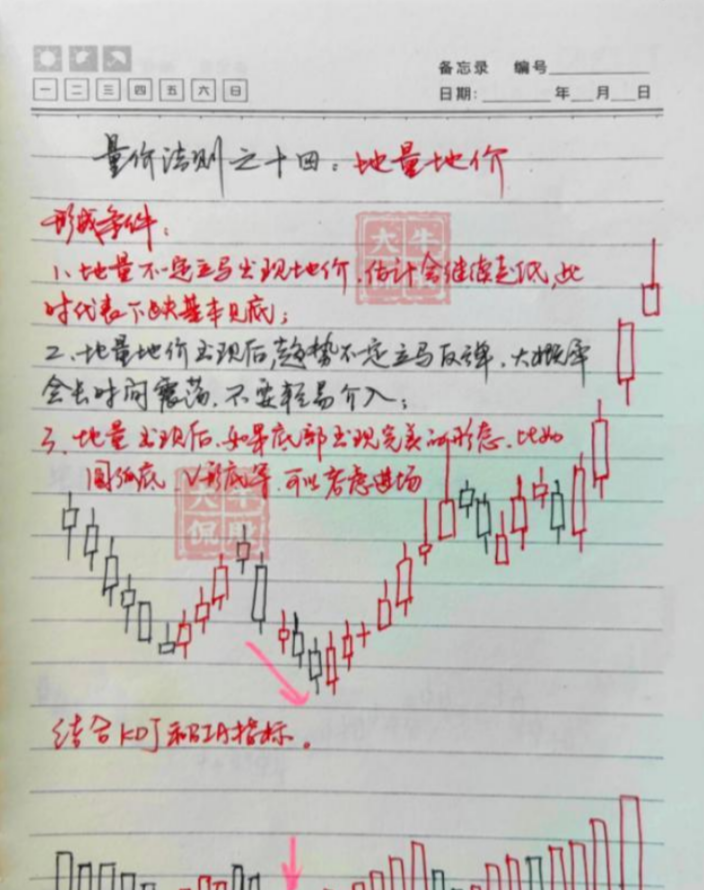 备忘录 编号
一 二 三 四 五 六 日
日期: 年 月 日
量价法则之十四：地量地价
形成条件：
1、地量不一定立马出现地价，估计会继续走低，此
时代表下跌基本见底；
2、地量地价出现后，趋势不一定立马反弹，大概率
会长时间震荡，不要轻易介入；
3、地量出现后，如果底部出现完美的形态，比如
圆弧底、V形底等，可以考虑进场
大牛
大牛
侃股
结合KDJ和BIA指标。